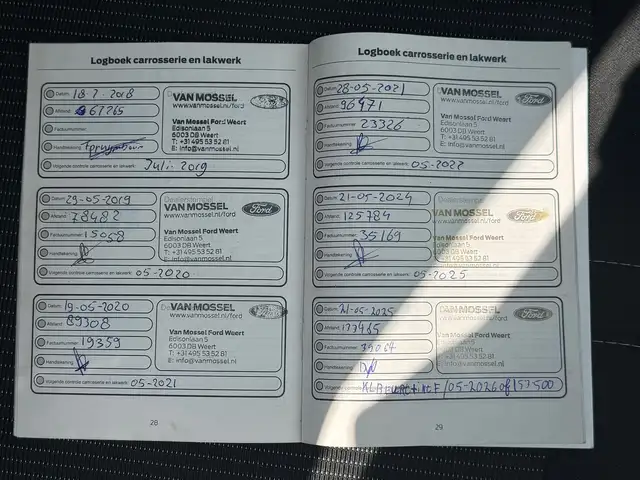 Logboek carrosserie en lakwerk
Datum: 18-7-2018
Afstand: 67765
Factuurnummer:
Handtekening:
VAN MOSSEL
www.vanmossel.nl/ford
Van Mossel Ford Weert
Edisonlaan 5
6003 DB Weert
T: +31 495 53 52 81
E: info@vanmossel.nl
Volgende controle carrosserie en lakwerk: Juli 2019
Datum: 29-05-2019
Afstand: 78482
Factuurnummer: 15058
Handtekening:
Dealerstempel
VAN MOSSEL
www.vanmossel.nl/ford
Ford
Van Mossel Ford Weert
Edisonlaan 5
6003 DB Weert
T: +31 495 53 52 81
E: info@vanmossel.nl
Volgende controle carrosserie en lakwerk: 05-2020
Datum: 19-05-2020
Afstand: 89308
Factuurnummer: 19359
Handtekening:
VAN MOSSEL
www.vanmossel.nl/ford
Van Mossel Ford Weert
Edisonlaan 5
6003 DB Weert
T: +31 495 53 52 81
E: info@vanmossel.nl
Volgende controle carrosserie en lakwerk: 05-2021
28
Logboek carrosserie en lakwerk
Datum: 28-05-2021
Afstand: 96971
Factuurnummer: 23326
Handtekening:
VAN MOSSEL
www.vanmossel.nl/ford
Ford
Van Mossel Ford Weert
Edisonlaan 5
6003 DB Weert
T: +31 495 53 52 81
E: info@vanmossel.nl
Volgende controle carrosserie en lakwerk: 05-2022
Datum: 21-05-2024
Afstand: 125784
Factuurnummer: 35169
Handtekening:
Dealerstempel
VAN MOSSEL
www.vanmossel.nl/ford
Ford
Van Mossel Ford Weert
Edisonlaan 5
6003 DB Weert
T: +31 495 53 52 81
E: info@vanmossel.nl
Volgende controle carrosserie en lakwerk: 05-2025
Datum: 21-05-2025
Afstand:
Factuurnummer:
Handtekening:
VAN MOSSEL
www.vanmossel.nl/ford
Ford
Van Mossel Ford Weert
Edisonlaan 5
6003 DB Weert
T: +31 495 53 52 81
E: info@vanmossel.nl
Volgende controle /05-2026 of 157500
29